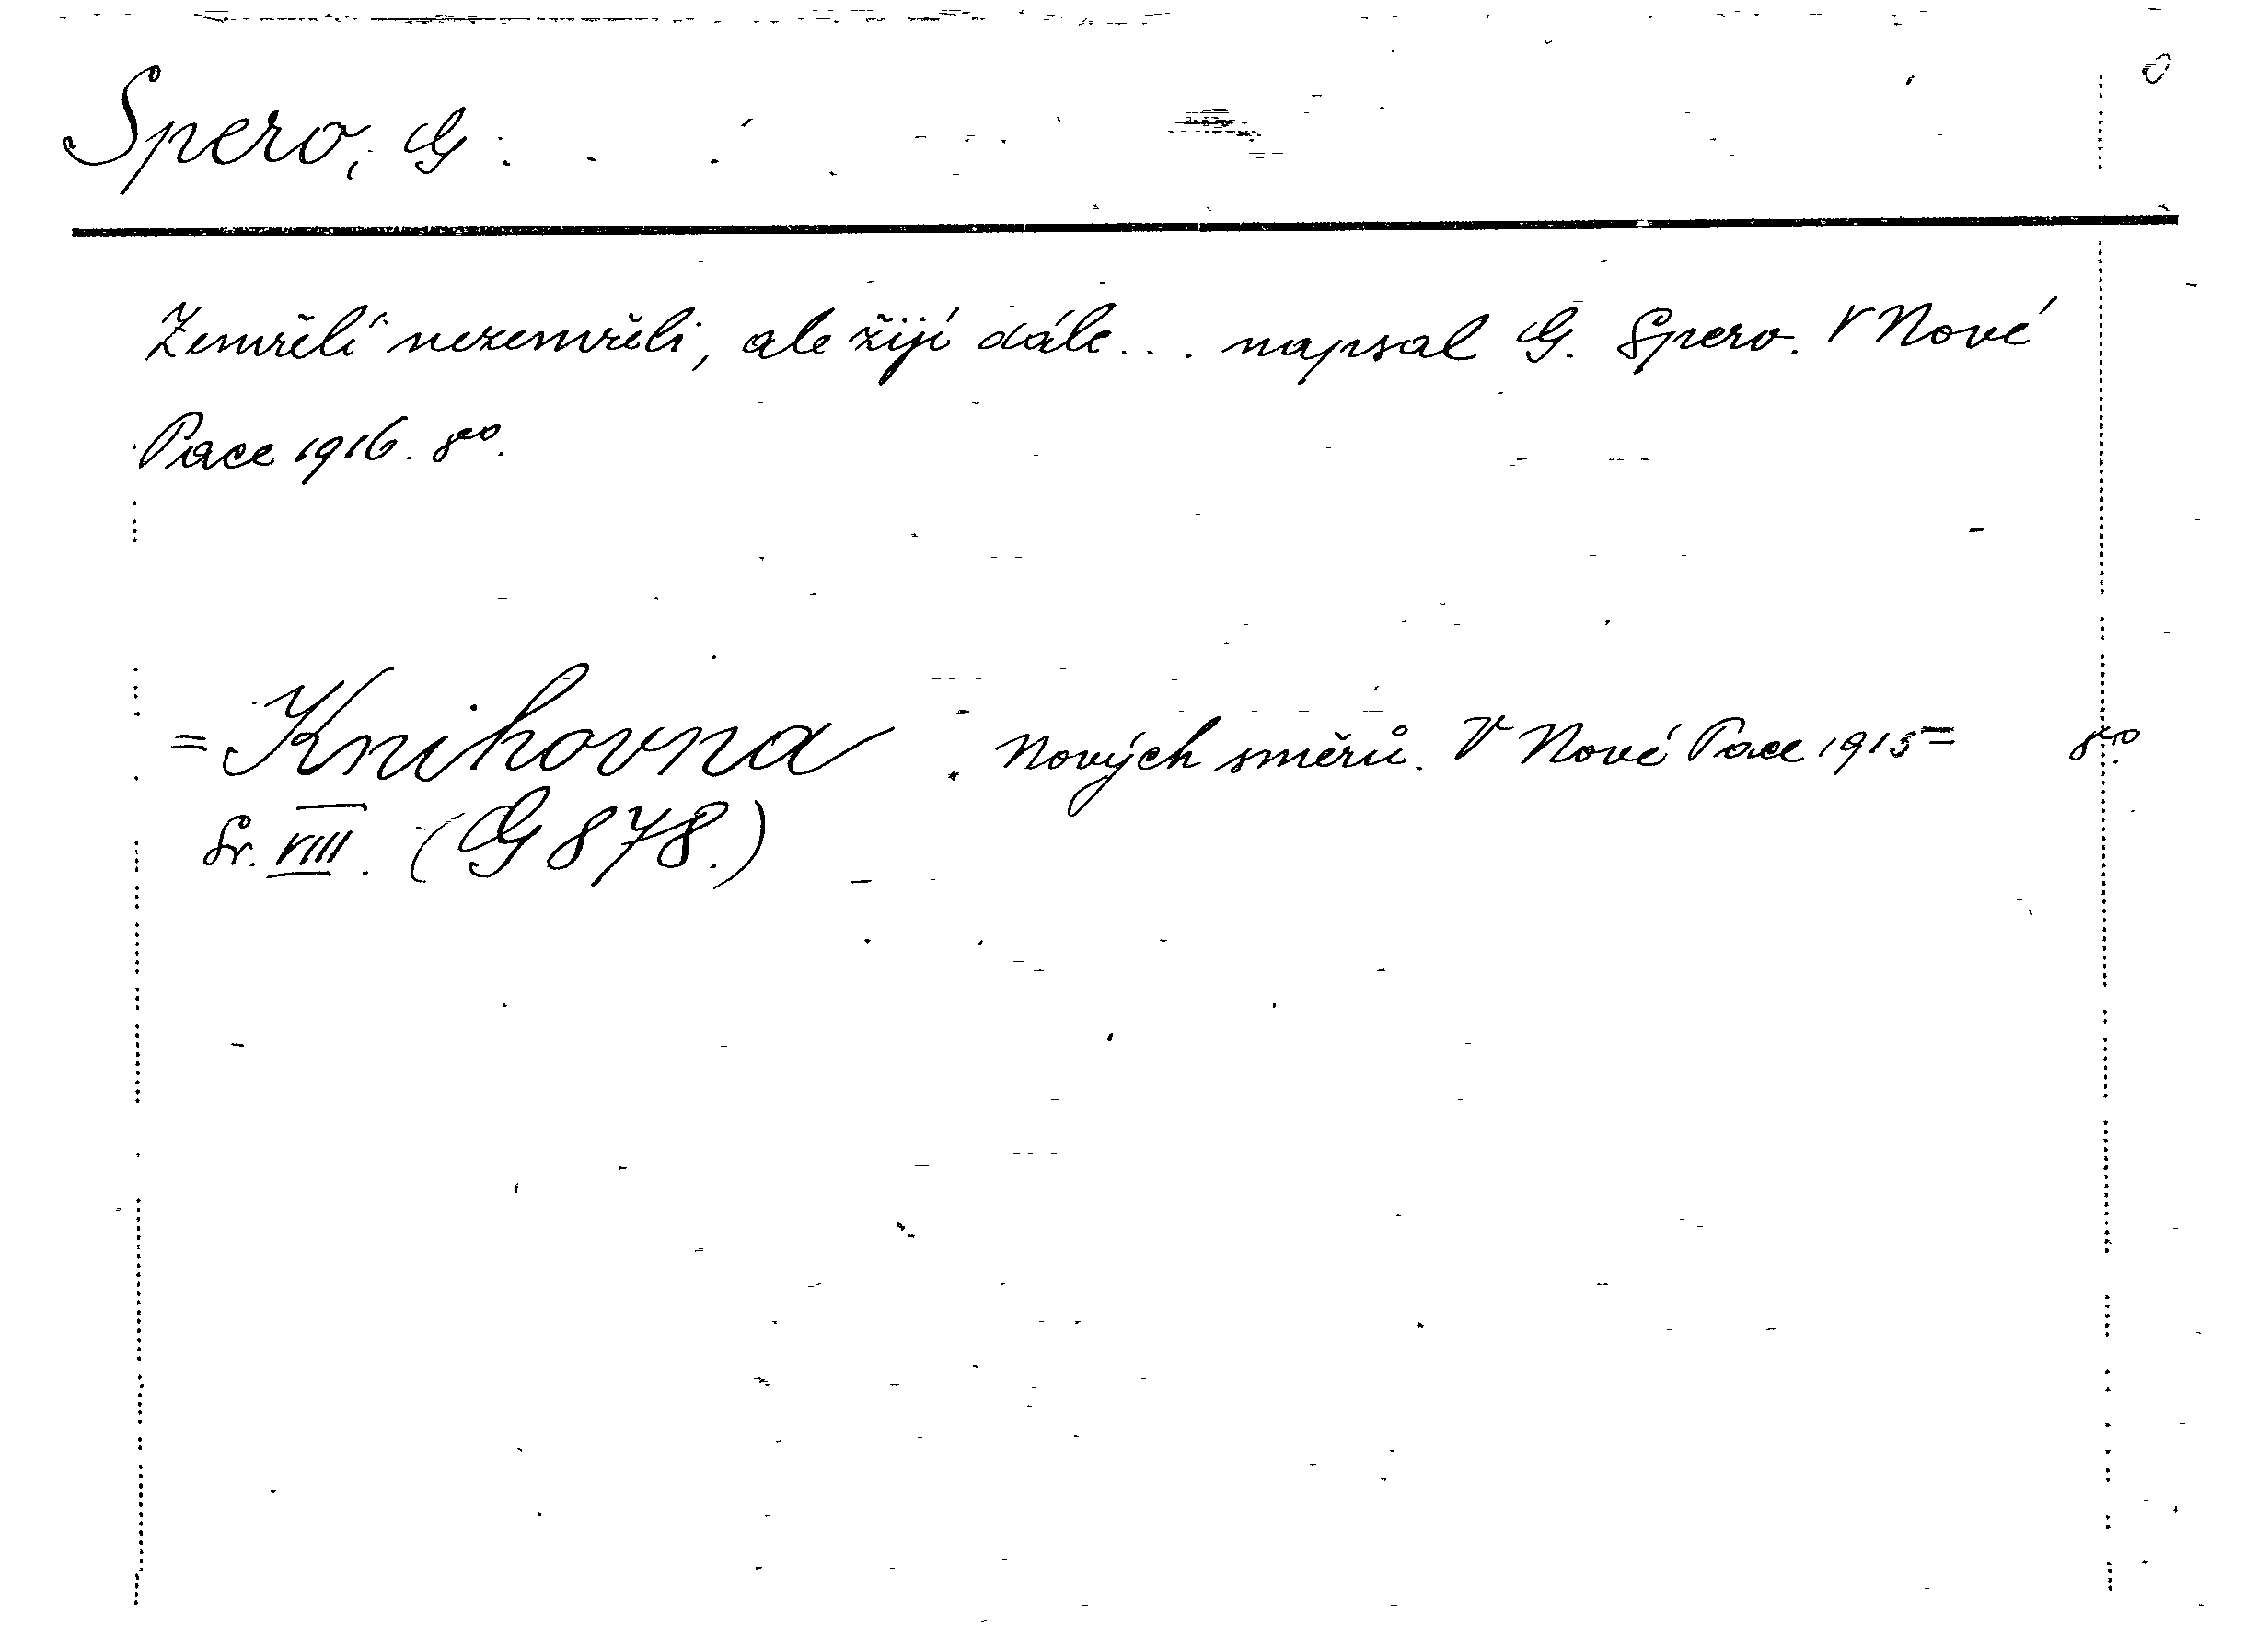 Spero, G.
Zemřelí nezemřeli, ale žijí dále... napsal G. Spero. V Nové
Pace 1916. 8vo.
= Knihovna nových směrů. V Nové Pace 1915= 8vo.
Sv. VIII. (G 878.)